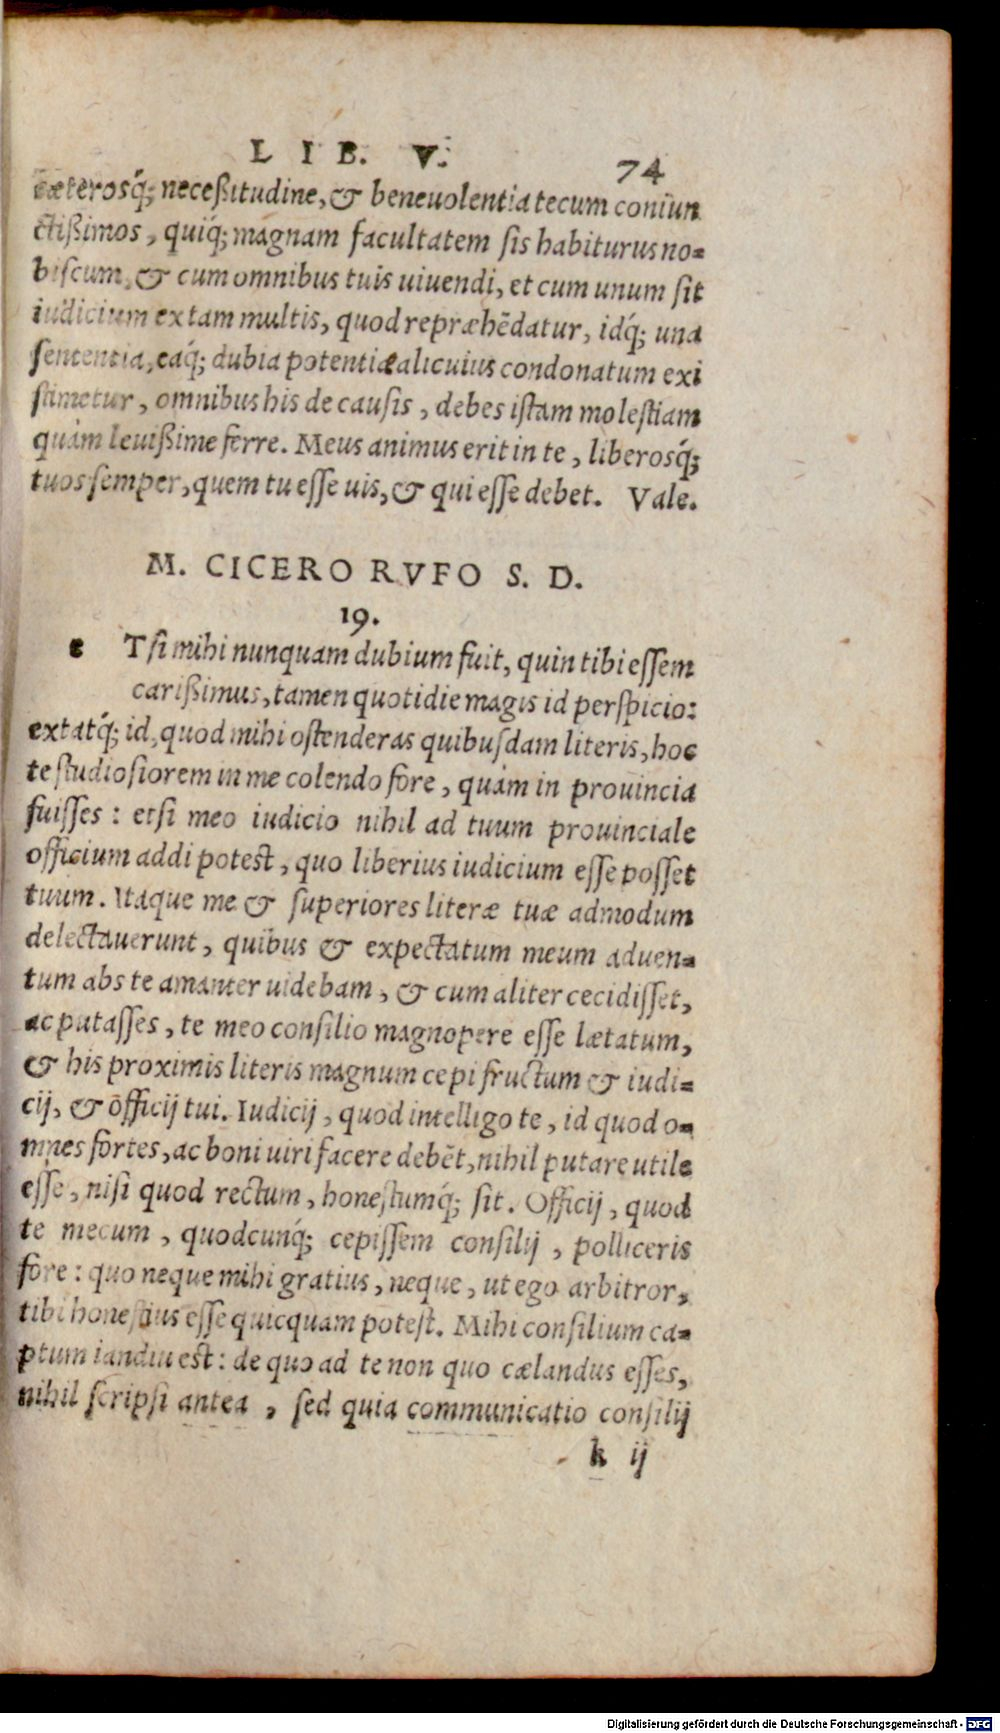 LIB. V. 74
cæterosq́; neceßitudine, & beneuolentia tecum coniun
ctißimos, quiq́; magnam facultatem sis habiturus no=
biscum, & cum omnibus tuis uiuendi, et cum unum sit
iudicium ex tam multis, quod repræhẽdatur, idq́; una
sententia, eaq́; dubia potentiæ alicuius condonatum exi
stimetur, omnibus his de causis, debes istam molestiam
quàm leuißime ferre. Meus animus erit in te, liberosq́;
tuos semper, quem tu esse uis, & qui esse debet. Vale.
M. CICERO RVFO S. D.
19.
e Tsi mihi nunquam dubium fuit, quin tibi essem
carißimus, tamen quotidie magis id perspicio:
extatq́; id, quod mihi ostenderas quibusdam literis, hoc
te studiosiorem in me colendo fore, quàm in prouincia
fuisses: etsi meo iudicio nihil ad tuum prouinciale
officium addi potest, quo liberius iudicium esse posset
tuum. Itaque me & superiores literæ tuæ admodum
delectauerunt, quibus & expectatum meum aduen=
tum abs te amanter uidebam, & cum aliter cecidisset,
ac putasses, te meo consilio magnopere esse lætatum,
& his proximis literis magnum cepi fructum & iudi=
cij, & officij tui. Iudicij, quod intelligo te, id quod o=
mnes fortes, ac boni uiri facere debẽt, nihil putare utile
esse, nisi quod rectum, honestumq́; sit. Officij, quod
te mecum, quodcunq́; cepissem consilij, polliceris
fore: quo neque mihi gratius, neque, ut ego arbitror,
tibi honestius esse quicquam potest. Mihi consilium ca=
ptum iandiu est: de quo ad te non quo cælandus esses,
nihil scripsi antea, sed quia communicatio consilij
k ij
Digitalisierung gefördert durch die Deutsche Forschungsgemeinschaft - DFG